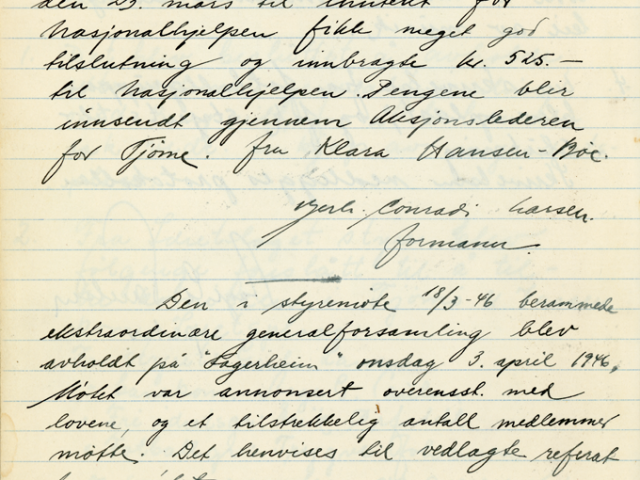 den 23. mars til inntekt for
Nasjonalhjelpen fikk meget god
tilslutning og innbragte kr. 525.-
til Nasjonalhjelpen. Pengene blir
innsendt gjennem Aksjonslederen
for Tjöme. fru Klara Hansen-Bøe.
Conradi Larsen.
formann.
Den i styremöte 18/3-46 berammede
ekstraordinære generalforsamling blev
avholdt på "Fagerheim" onsdag 3. april 1946,
Mötet var annonsert overensst. med
lovene, og et tilstrekkelig antall medlemmer
mötte. Det henvises til vedlagte referat